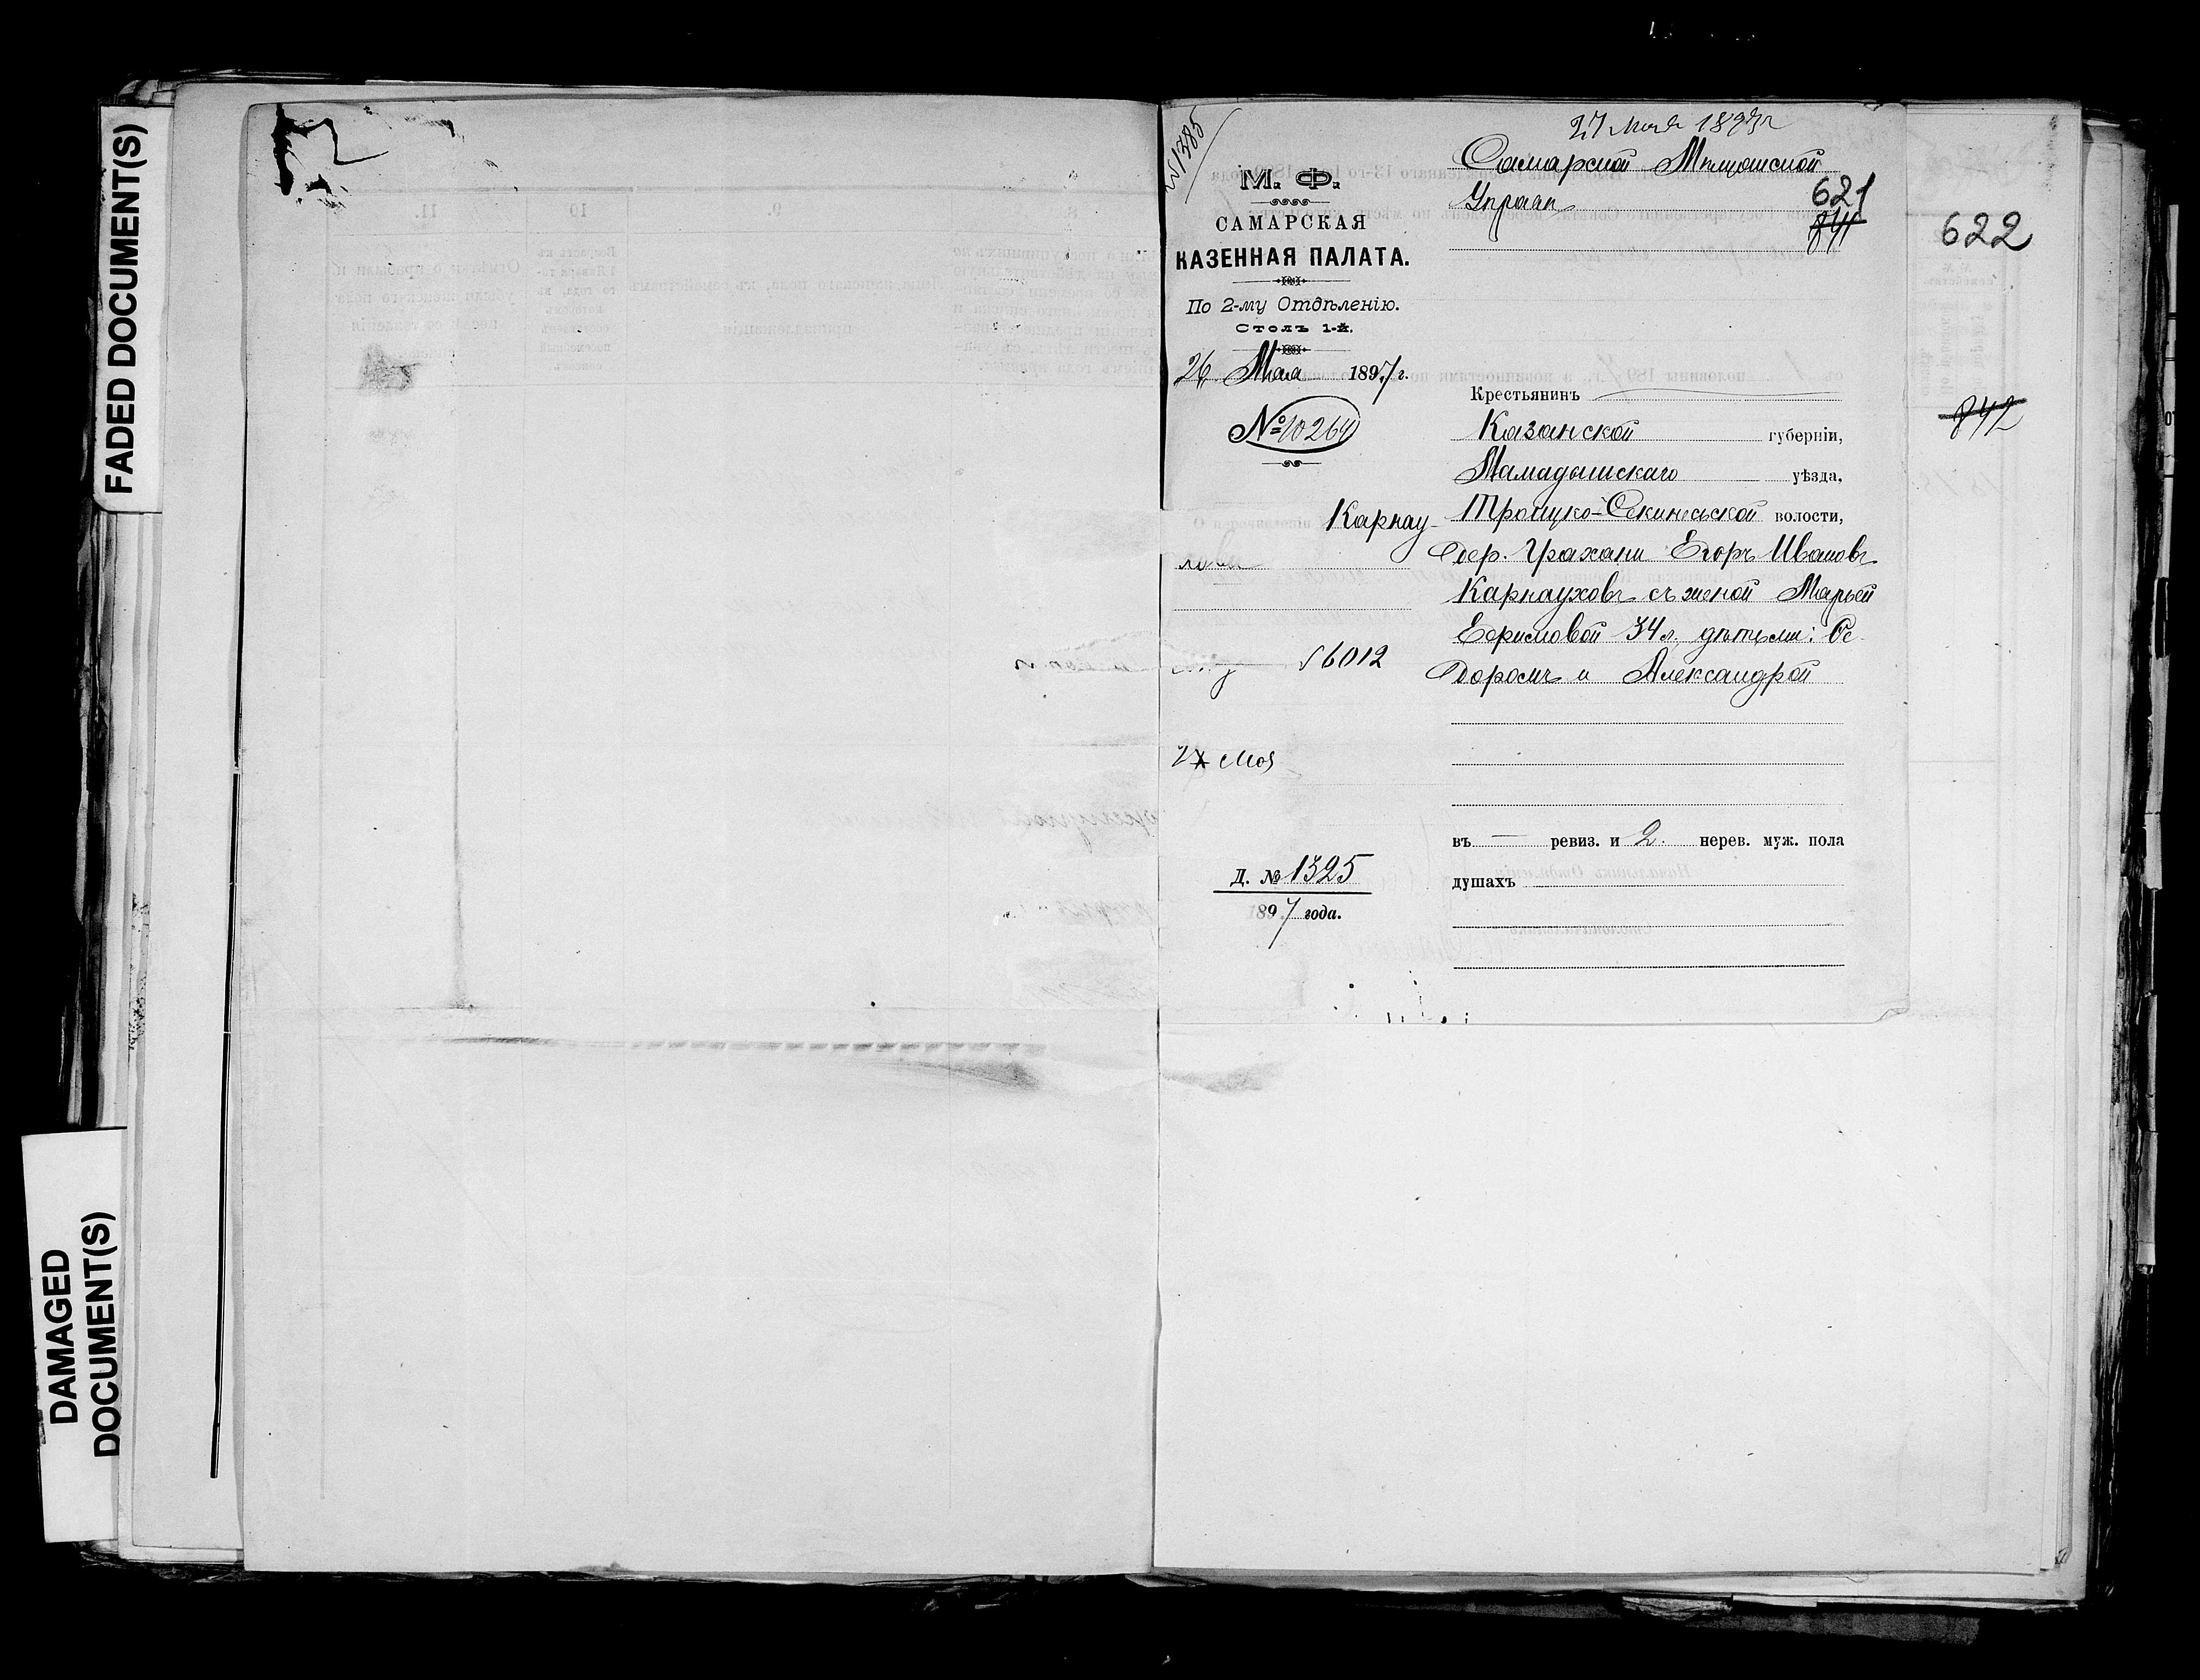 FADED DOCUMENT(S)
DAMAGED
DOCUMENT(S)
№ 1385
М. Ф.
САМАРСКАЯ
КАЗЕННАЯ ПАЛАТА.
По 2-му Отдѣленію.
Столъ 1-й.
26 Мая 1897 г.
№ 10264
Карнау-
хова
56012
Д. № 1325
1897 года.
27 Мая 1897 г
Самарской Мѣщанской
Управѣ
621
841
Крестьянинъ
Казанской губерніи,
Мамадышскаго уѣзда,
Троицко-Секинеьской волости,
дер. Грахани Егоръ Ивановъ
Карнауховъ съ женой Марьей
Ефимовой 34 л, дѣтьми: Ѳе-
доромъ и Александрой
въ — ревиз. и 2. нерев. муж. пола
душахъ
622
842